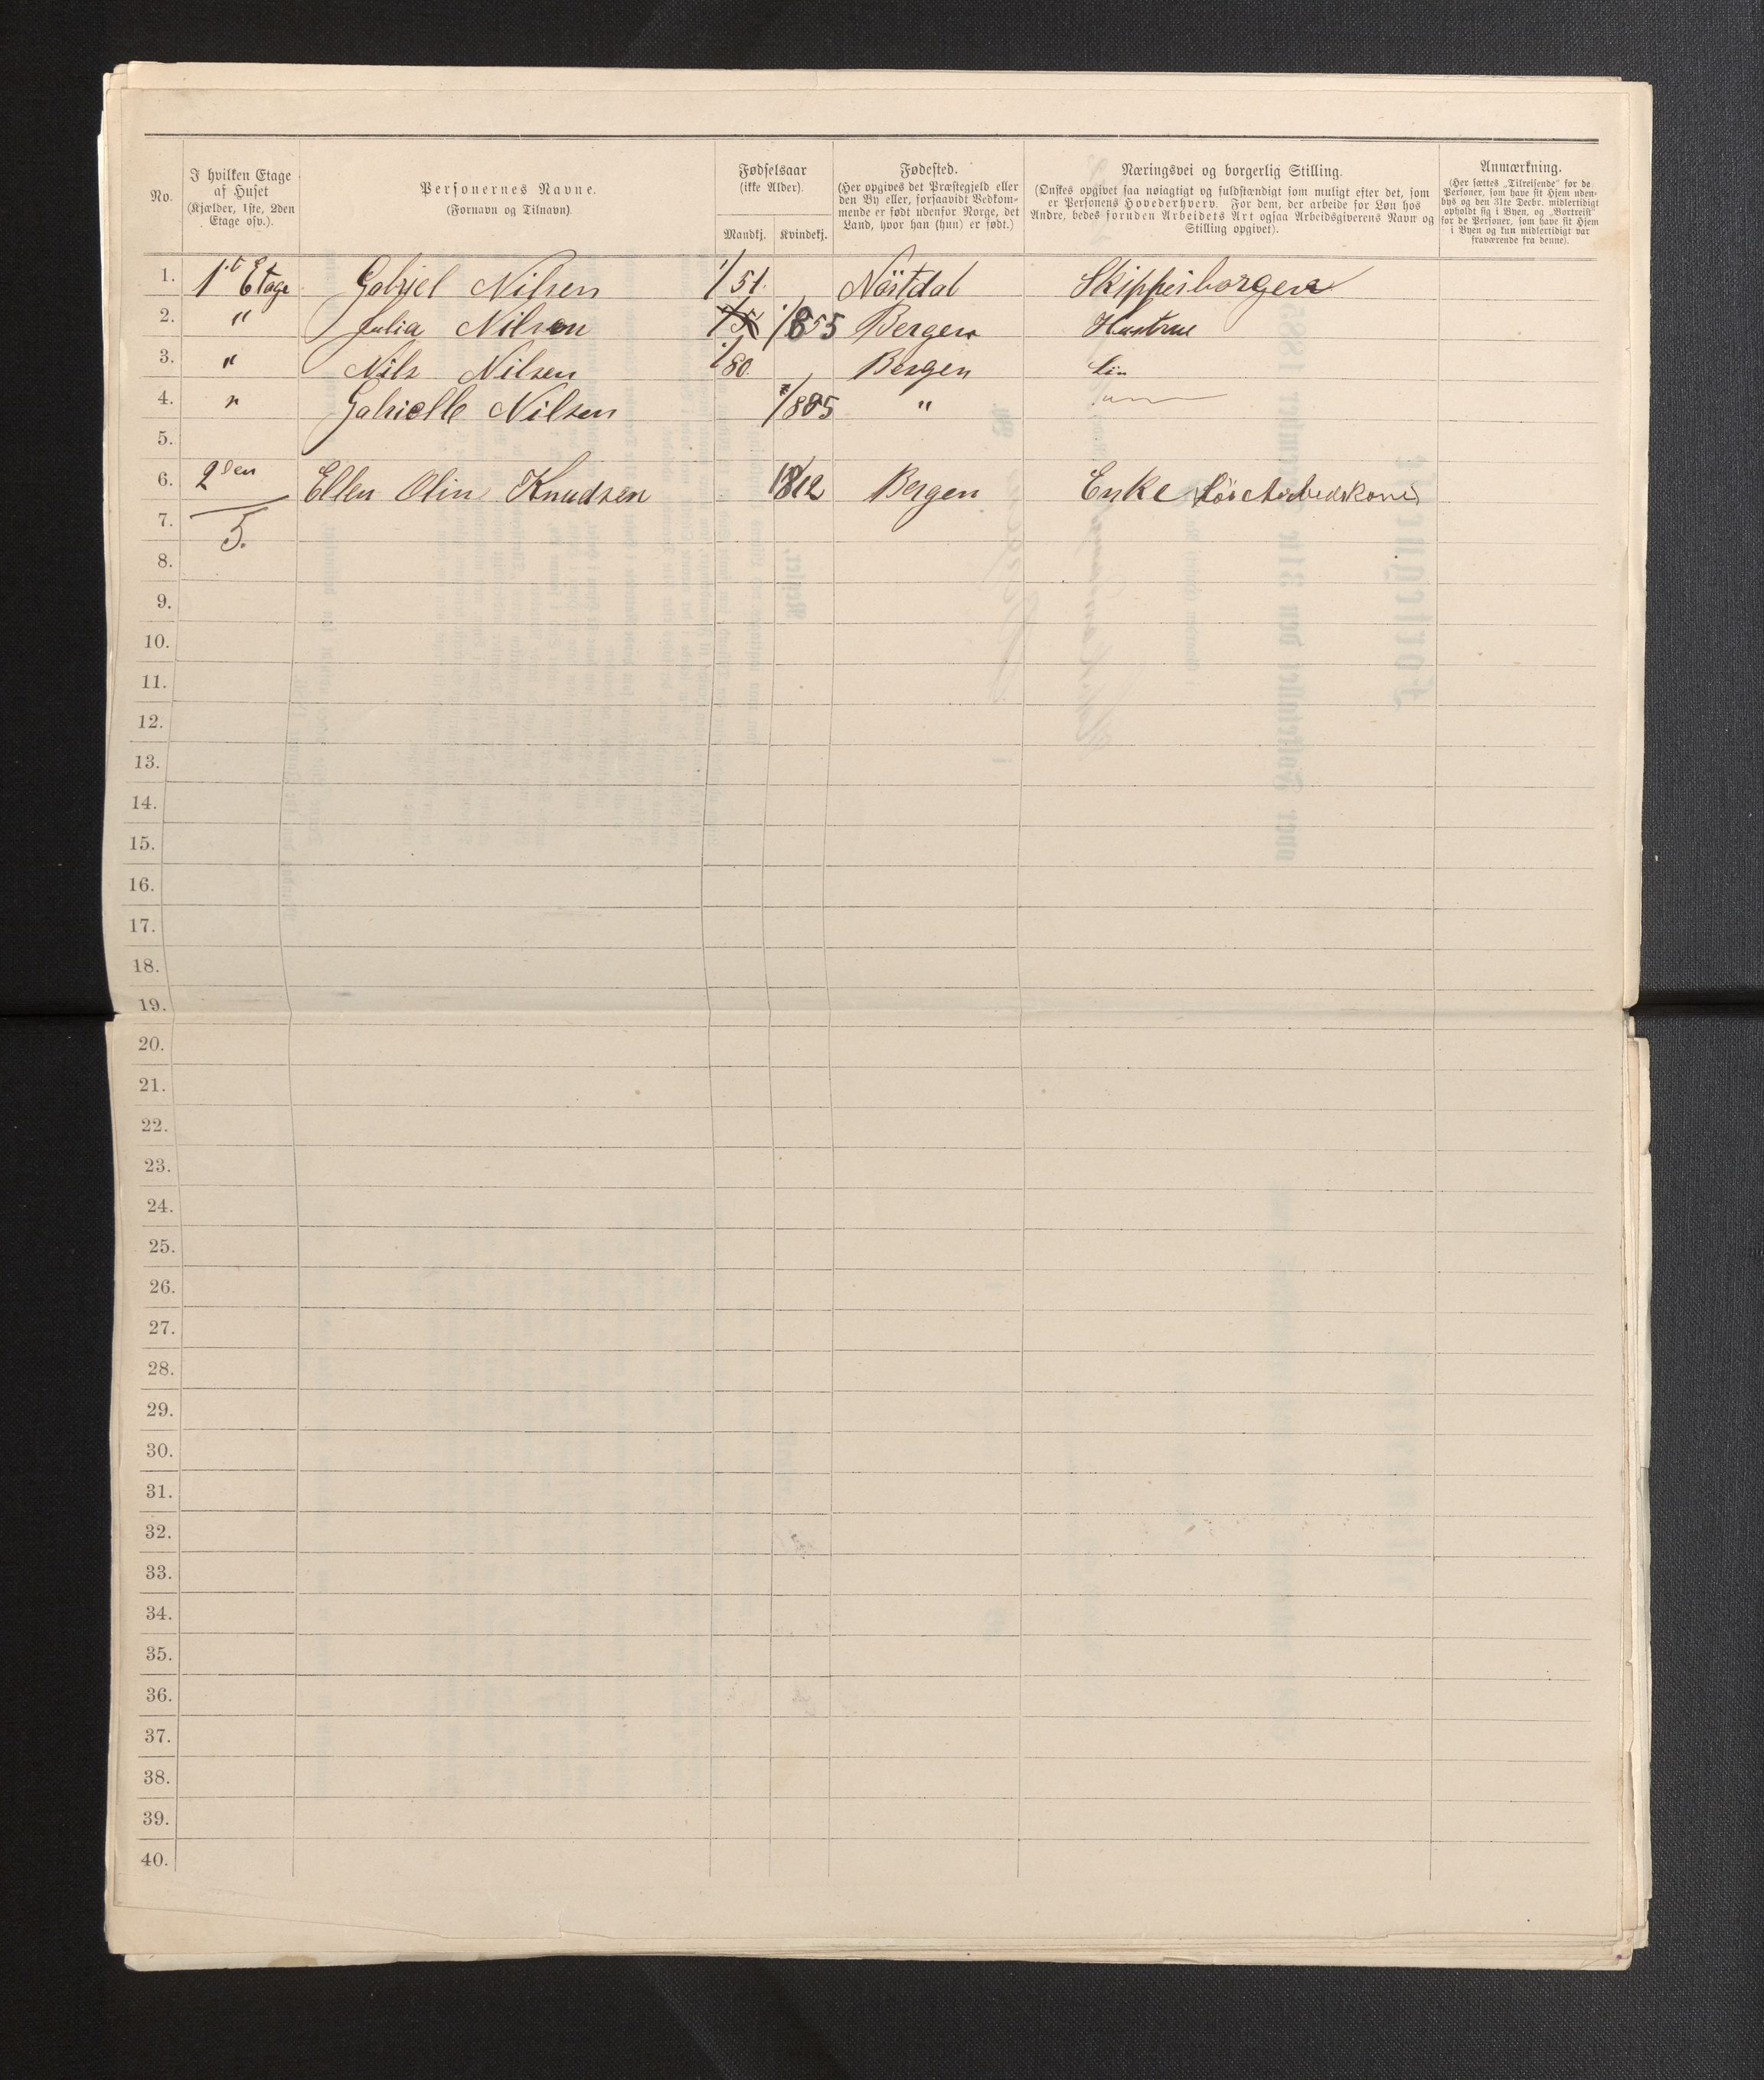 No.
I hvilken Etage af Huset (Kjælder, 1ste, 2den Etage osv.).
Personernes Navne. (Fornavn og Tilnavn).
Fødselsaar (ikke Alder). Mandkj. Kvindekj.
Fødested. (Her opgives det Præstegjeld eller den By eller, forsaavidt Vedkommende er født udenfor Norge, det Land, hvor han (hun) er født.)
Næringsvei og borgerlig Stilling. (Ønskes opgivet saa nøiagtigt og fuldstændigt som muligt efter det, som er Personens Hovederhverv. For dem, der arbeide for Løn hos Andre, bedes foruden Arbeidets Art ogsaa Arbeidsgiverens Navn og Stilling opgivet).
Anmærkning. (Her sættes „Tilreisende" for de Personer, som have sit Hjem udenbys og den 31te Decbr. midlertidigt opholdt sig i Byen, og „Bortreist" for de Personer, som have sit Hjem i Byen og kun midlertidigt var fraværende fra denne).
1. 1st Etage Gabriel Nilsen 51. Nöstdal Skipperborger
2. " Julia Nilsen 855 Bergen Hustrue
3. " Nils Nilsen 80. Bergen
4. " Gabrielle Nilsen 885 "
5.
6. 2den Ellen Olin Knudsen 1812 Bergen Enke Lös Arbeidskone
7. 5.
8.
9.
10.
11.
12.
13.
14.
15.
16.
17.
18.
19.
20.
21.
22.
23.
24.
25.
26.
27.
28.
29.
30.
31.
32.
33.
34.
35.
36.
37.
38.
39.
40.